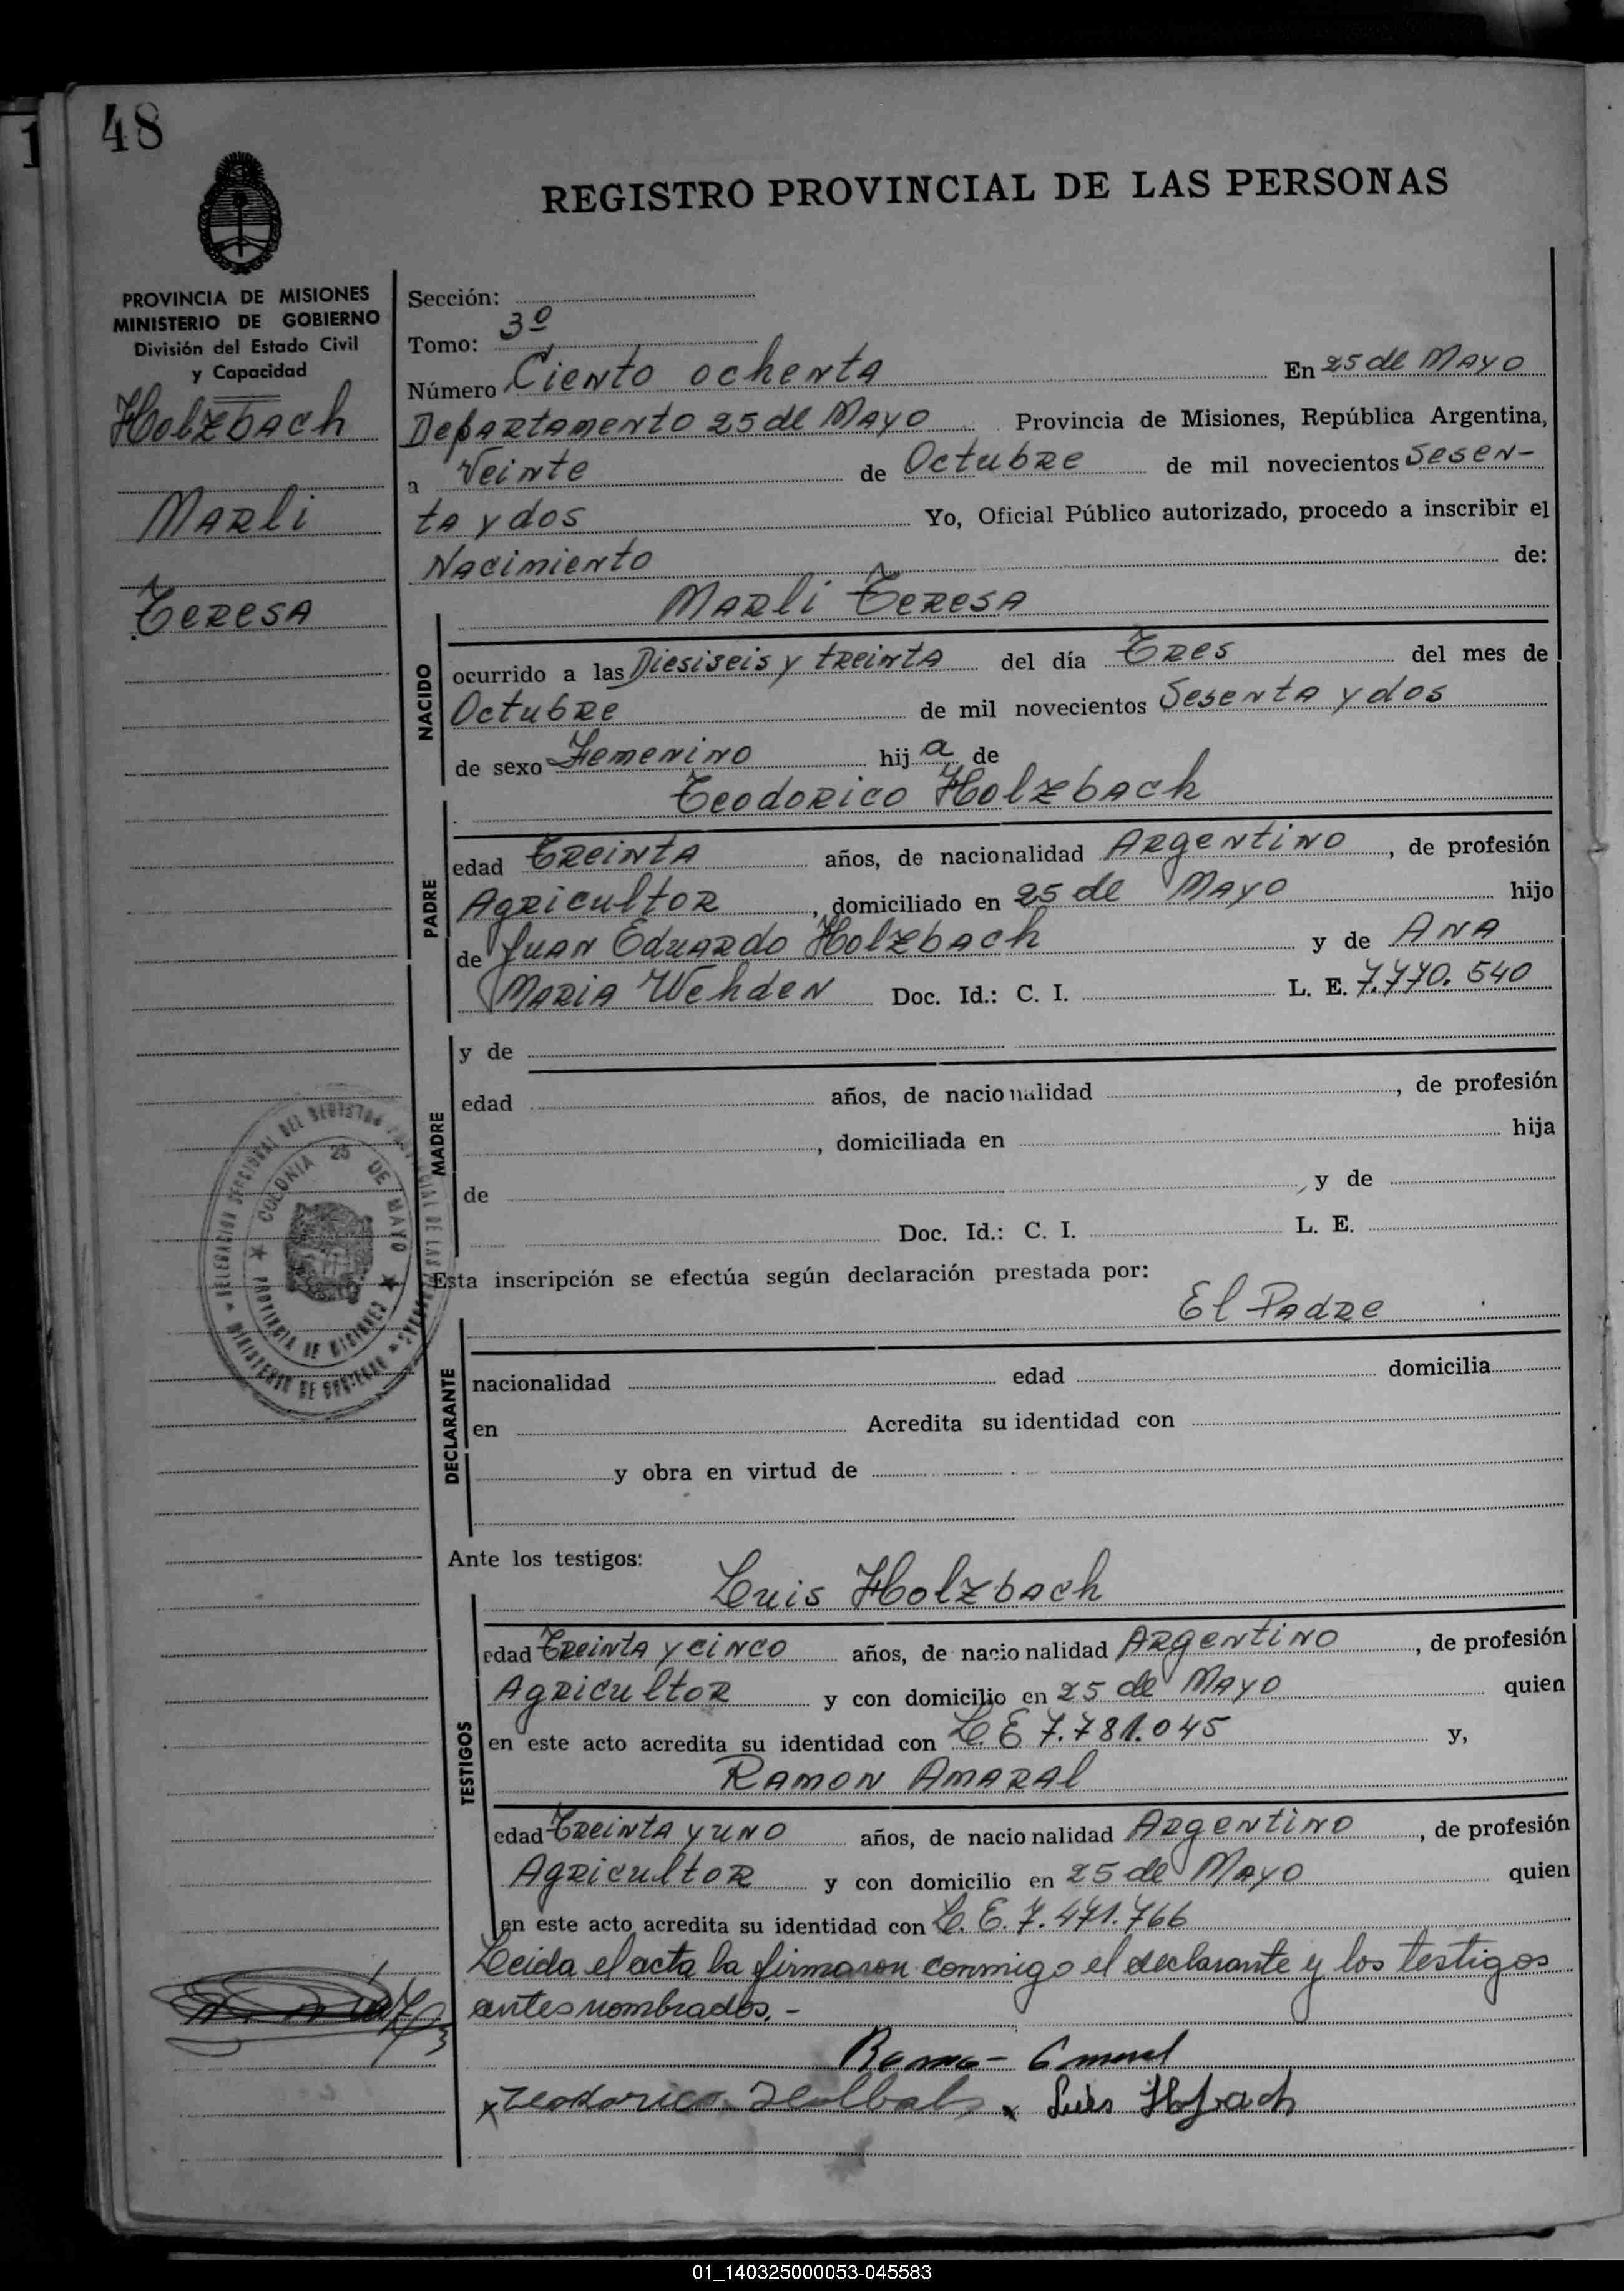 1
48
REGISTRO PROVINCIAL DE LAS PERSONAS
PROVINCIA DE MISIONES
MINISTERIO DE GOBIERNO
División del Estado Civil
y Capacidad
Holzbach
Marli
Teresa
Sección:
Tomo: 3º
Número Ciento ochenta En 25 de Mayo
Departamento 25 de Mayo Provincia de Misiones, República Argentina,
a Veinte de Octubre de mil novecientos Sesen-
ta y dos Yo, Oficial Público autorizado, procedo a inscribir el
Nacimiento de:
Marli Teresa
NACIDO
ocurrido a las Diesiseis y treinta del día Tres del mes de
Octubre de mil novecientos Sesenta y dos
de sexo Femenino hija de
Teodorico Holzbach
PADRE
edad Treinta años, de nacionalidad Argentino, de profesión
Agricultor, domiciliado en 25 de Mayo hijo
de Juan Eduardo Holzbach y de Ana
Maria Wehden Doc. Id.: C. I. L. E. 7.770.540
MADRE
y de
edad años, de nacionalidad , de profesión
, domiciliada en hija
de , y de
Doc. Id.: C. I. L. E.
COLONIA 25 DE MAYO
PROVINCIA DE MISIONES
MINISTERIO DE GOBIERNO
Esta inscripción se efectúa según declaración prestada por:
El Padre
DECLARANTE
nacionalidad edad domicilia
en Acredita su identidad con
y obra en virtud de
Ante los testigos:
Luis Holzbach
TESTIGOS
edad Treinta y cinco años, de nacionalidad Argentino, de profesión
Agricultor y con domicilio en 25 de Mayo quien
en este acto acredita su identidad con L.E 7.781.045 y,
Ramon Amaral
edad Treinta y uno años, de nacionalidad Argentino, de profesión
Agricultor y con domicilio en 25 de Mayo quien
en este acto acredita su identidad con L.E. 7.471.766
Leida el acta la firmaron conmigo el declarante y los testigos
antes nombrados.-
x Teodorico x Luis
01_140325000053-045583